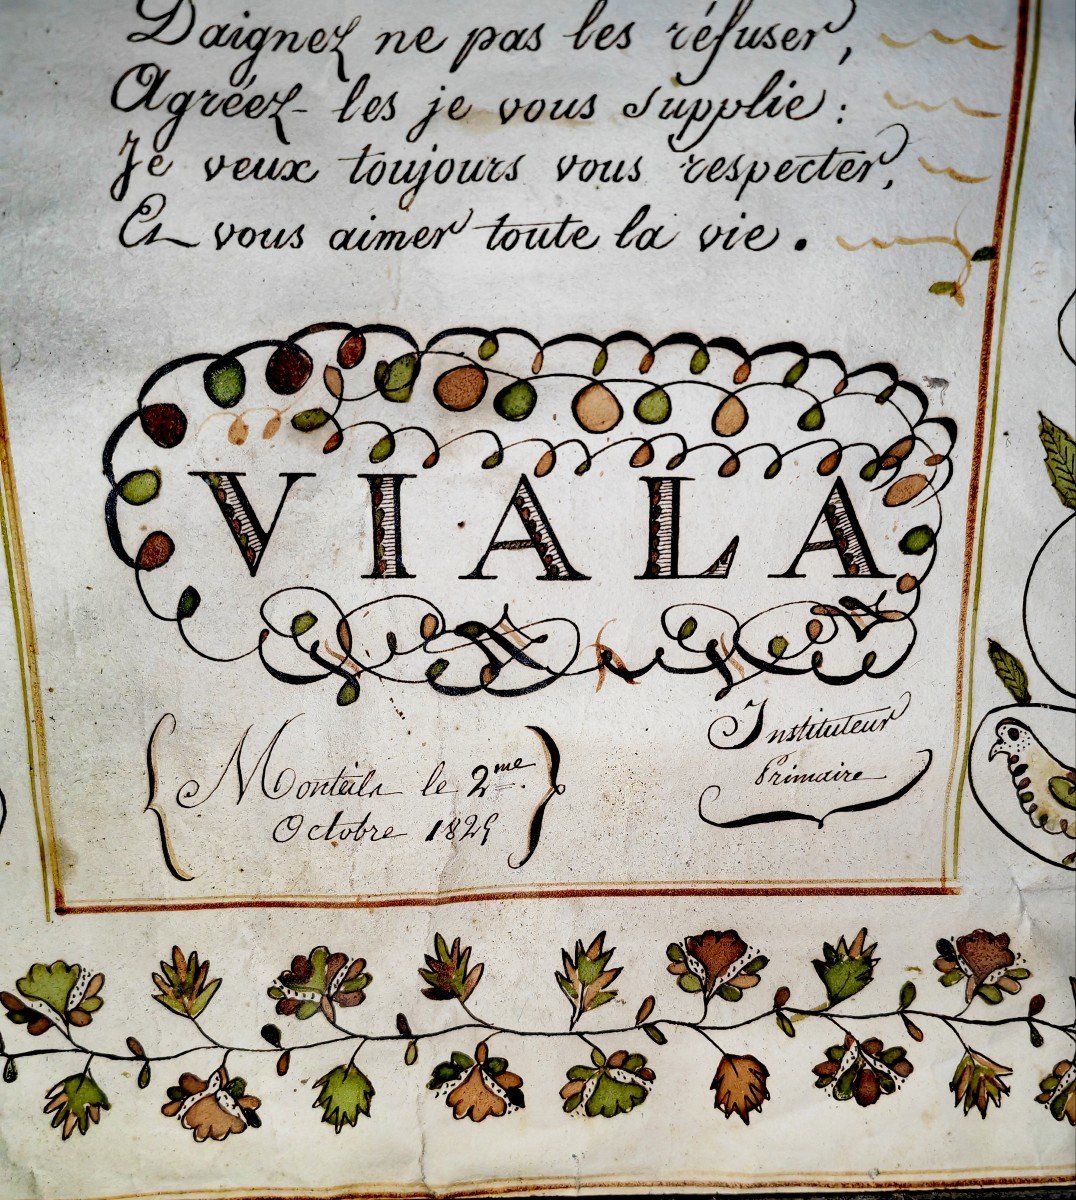 Daignez ne pas les réfuser,
Agréez-les je vous supplie:
Je veux toujours vous respecter,
Et vous aimer toute la vie.
VIALA
Instituteur
Primaire
Monteils le 2me.
Octobre 1825